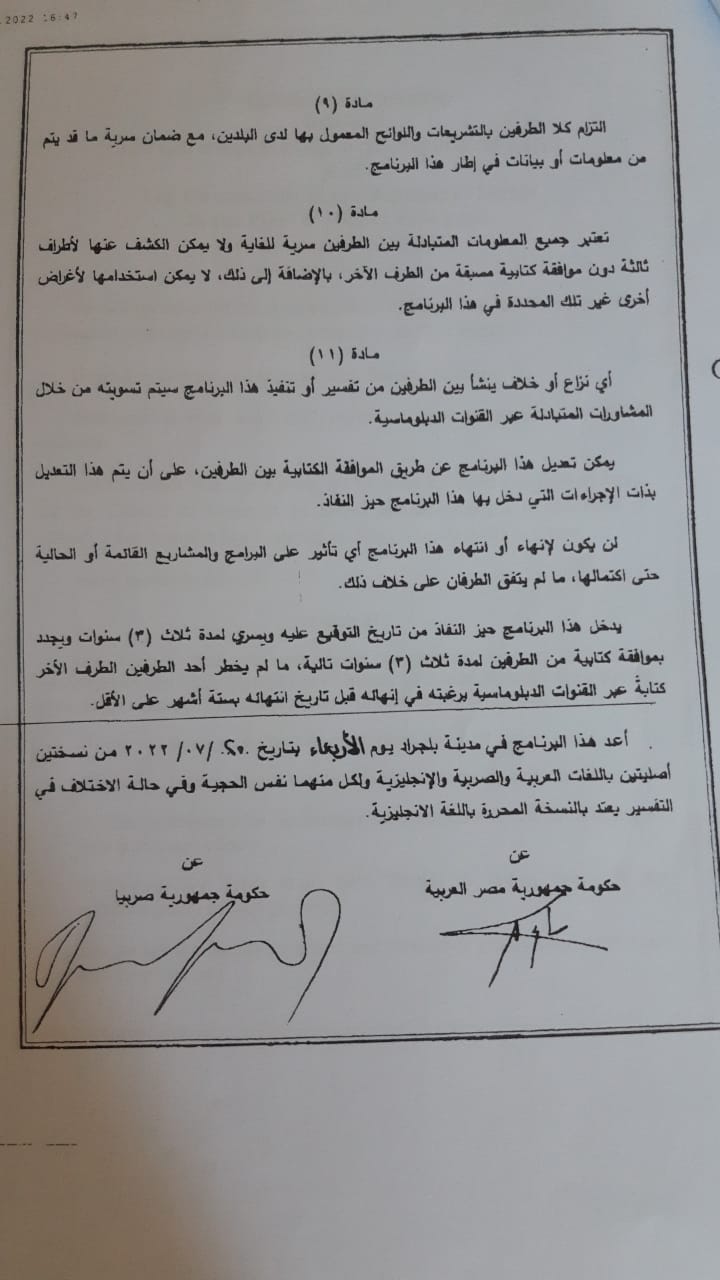 .2022 16:47
مادة (٩)
التزام كلا الطرفين بالتشريعات واللوائح المعمول بها لدى البلدين، مع ضمان سرية ما قد يتم
من معلومات أو بيانات في إطار هذا البرنامج.
مادة (١٠)
تعتبر جميع المعلومات المتبادلة بين الطرفين سرية للغاية ولا يمكن الكشف عنها لأطراف
ثالثة دون موافقة كتابية مسبقة من الطرف الآخر، بالإضافة إلى ذلك، لا يمكن استخدامها لأغراض
أخرى غير تلك المحددة في هذا البرنامج.
مادة (١١)
أي نزاع أو خلاف ينشأ بين الطرفين من تفسير أو تنفيذ هذا البرنامج سيتم تسويته من خلال
المشاورات المتبادلة عبر القنوات الدبلوماسية.
يمكن تعديل هذا البرنامج عن طريق الموافقة الكتابية بين الطرفين، على أن يتم هذا التعديل
بذات الإجراءات التي دخل بها هذا البرنامج حيز النفاذ.
لن يكون لإنهاء أو انتهاء هذا البرنامج أي تأثير على البرامج والمشاريع القائمة أو الحالية
حتى اكتمالها، ما لم يتفق الطرفان على خلاف ذلك.
يدخل هذا البرنامج حيز النفاذ من تاريخ التوقيع عليه ويسري لمدة ثلاث (٣) سنوات ويجدد
بموافقة كتابية من الطرفين لمدة ثلاث (٣) سنوات تالية، ما لم يخطر أحد الطرفين الطرف الآخر
كتابةً عبر القنوات الدبلوماسية برغبته في إنهائه قبل تاريخ انتهائه بستة أشهر على الأقل.
أعد هذا البرنامج في مدينة بلجراد يوم الأربعاء بتاريخ ٢٠/ ٠٧/ ٢٠٢٢ من نسختين
أصليتين باللغات العربية والصربية والإنجليزية ولكل منهما نفس الحجية وفي حالة الاختلاف في
التفسير يعتد بالنسخة المحررة باللغة الانجليزية.
عن
حكومة جمهورية مصر العربية
عن
حكومة جمهورية صربيا